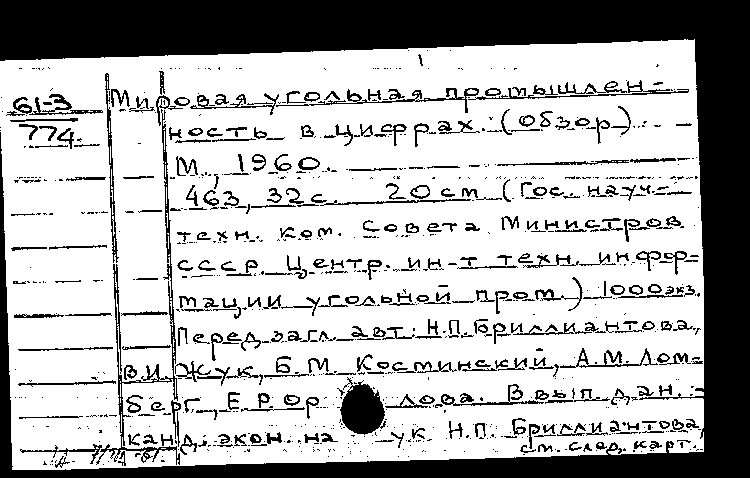 1
61-3
774.
Мировая угольная промышлен-
ность в цифрах. (Обзор). -
М., 1960.
463, 32 с. 20 см. (Гос. науч.-
техн. ком. Совета Министров
СССР. Центр. ин-т техн. инфор-
мации угольной пром.) 1000 экз.
Перед загл. авт.: Н.П. Бриллиантова,
В.И. Жук, Б.М. Костинский, А.М. Лом-
берг, Е Р Ор лова. В вып. дан.:
канд. экон. на ук Н.П. Бриллиантова,
см. след. карт.